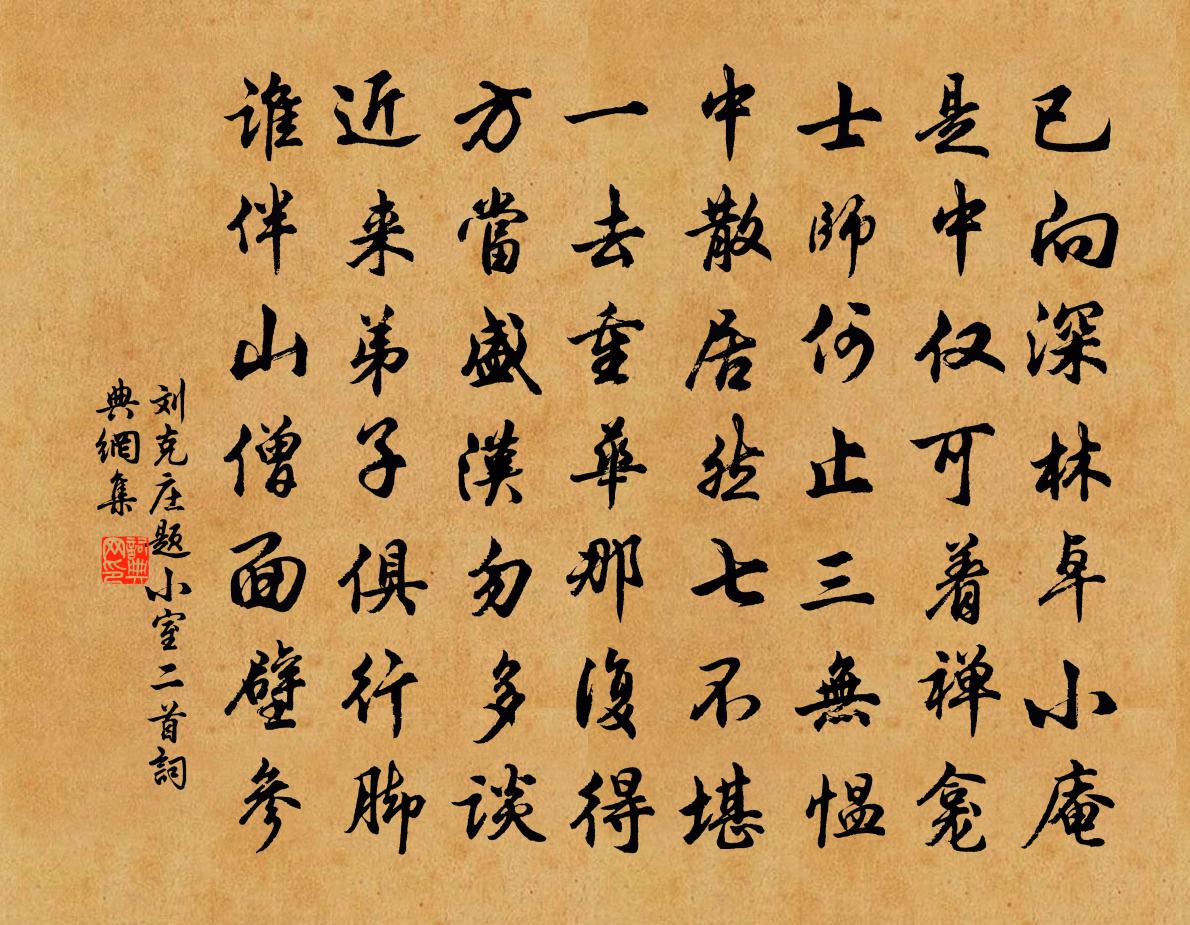 已向深林卓小庵
是中仅可着禅龛
士師何止三無愠
中散居然七不堪
一去重華那復得
方當盛漢勿多談
近来弟子俱行脚
谁伴山僧面壁參
刘克庄题小室二首詞
典網集
詞典网印